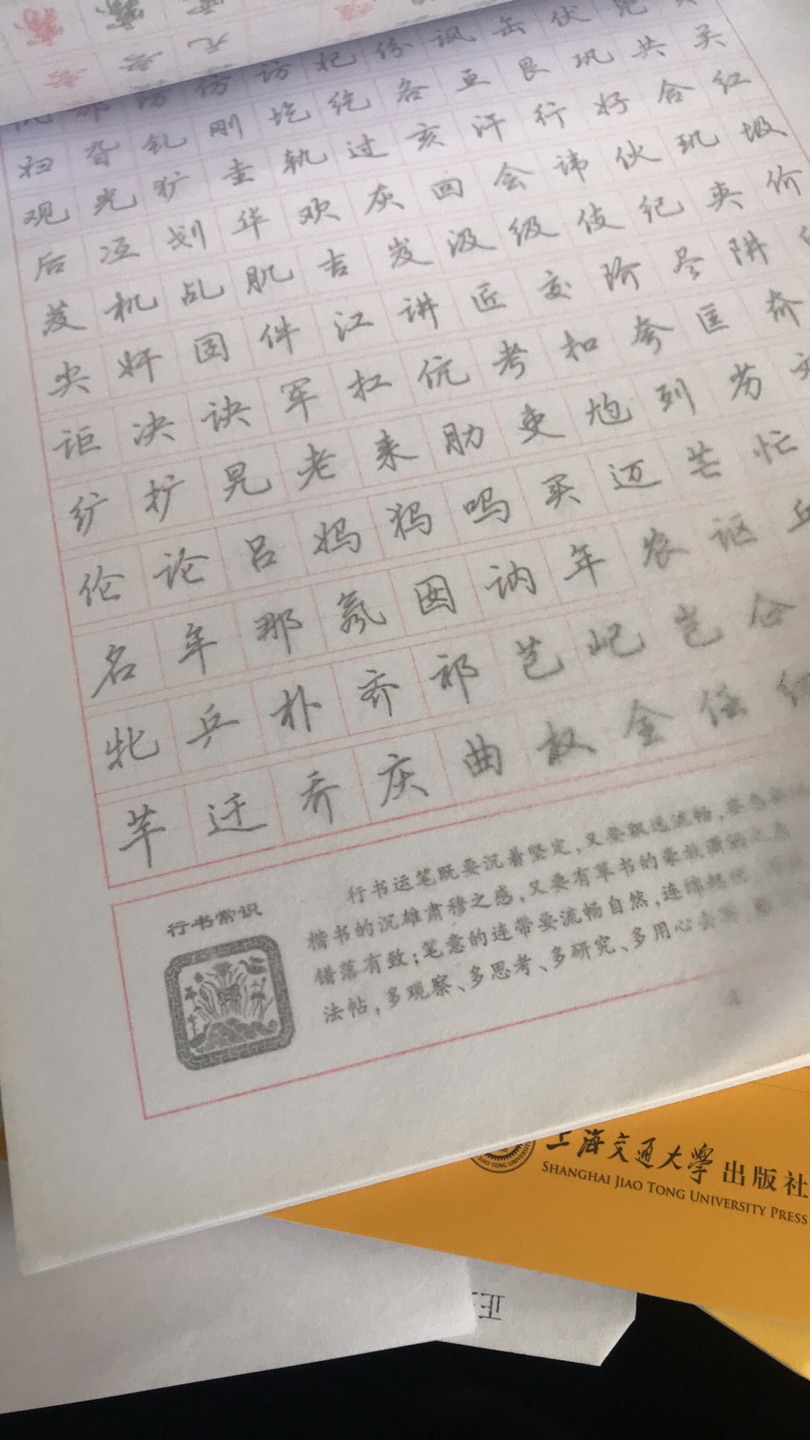 无
访 杞 份 讽 缶 伏
妇 旮 钆 刚 圪 纥 各 亘 艮 巩 共 关
观 光 犷 圭 轨 过 亥 汗 行 好 合 红
后 冱 划 华 欢 灰 回 会 讳 伙 玑 圾
芨 机 乩 肌 吉 岌 汲 级 伎 纪 夹 价
尖 奸 囝 件 江 讲 匠 交 阶 尽 阱
讵 决 诀 军 扛 伉 考 扣 夸 匡 夼
纩 扩 晃 老 耒 肋 吏 尥 列 劣
伦 论 吕 妈 犸 吗 买 迈 芒 忙
名 年 那 氖 囡 讷 年 农 讴 乒
牝 乒 朴 齐 祁 芑 屺 岂 企
芊 迁 乔 庆 曲 权 全 佤
行书常识
行书运笔既要沉着坚定，又要飘逸流畅，要
楷书的沉雄肃穆之感，又要有草书的豪放潇
错落有致；笔意的连带要流畅自然，连绵
法帖，多观察、多思考、多研究、多用心
4
上海交通大学出版社
SHANGHAI JIAO TONG UNIVERSITY PRESS
正